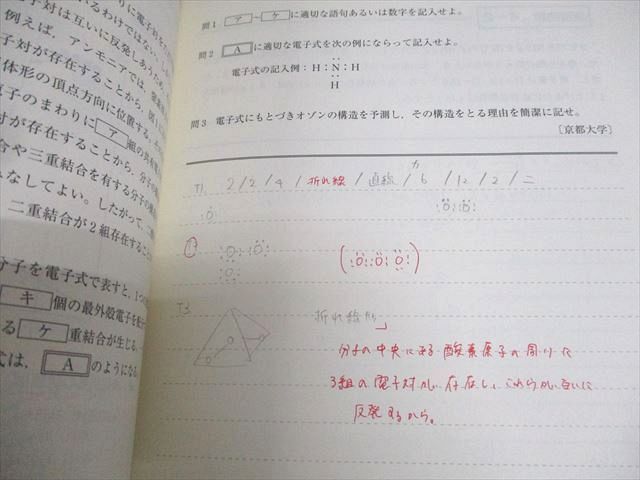 に電子対を
電子対は互いに反発しあうため
るわけではない。
例えば，アンモニアでは，
子対が存在することから，
体形の頂点方向に位置する。
原子のまわりに ア 組の
対が存在することから，分子の
合や三重結合を有する分子の
みなしてよい。したがって，二
二重結合が2組存在する
分子を電子式で表すと，1つ
キ 個の最外殻電子を
る ケ 重結合が生じる。
式は， A のようになる
問1 ア ～ ケ に適切な語句あるいは数字を記入せよ。
問2 A に適切な電子式を次の例にならって記入せよ。
電子式の記入例：H:N:H
H
問3 電子式にもとづきオゾンの構造を予測し，その構造をとる理由を簡潔に記せ。
〔京都大学〕
T1. 2 / 2 / 4 / 折れ線 / 直線 / カ 6 / 12 / 2 / 二
T3
折れ線形
分子の中央にある酸素原子の周りに
3組の電子対が存在し、これらが互いに
反発するから。